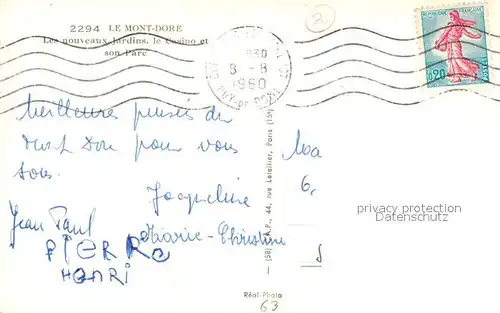 2294 LE MONT-DORE
Les nouveaux Jardins, le Casino et
son Parc
2
REPUBLIQUE FRANÇAISE
0,20
POSTES
8-8
1960
PUY-DE-DOME
Meilleures pensées du
Mont Dore pour vous
tous.
Jacqueline
Jean Paul
Marie-Christine
PIERRE
HENRI
(58) C.A.P., 44, rue Letellier, Paris (15)
Réal-Photo
63
6,
privacy protection
Datenschutz